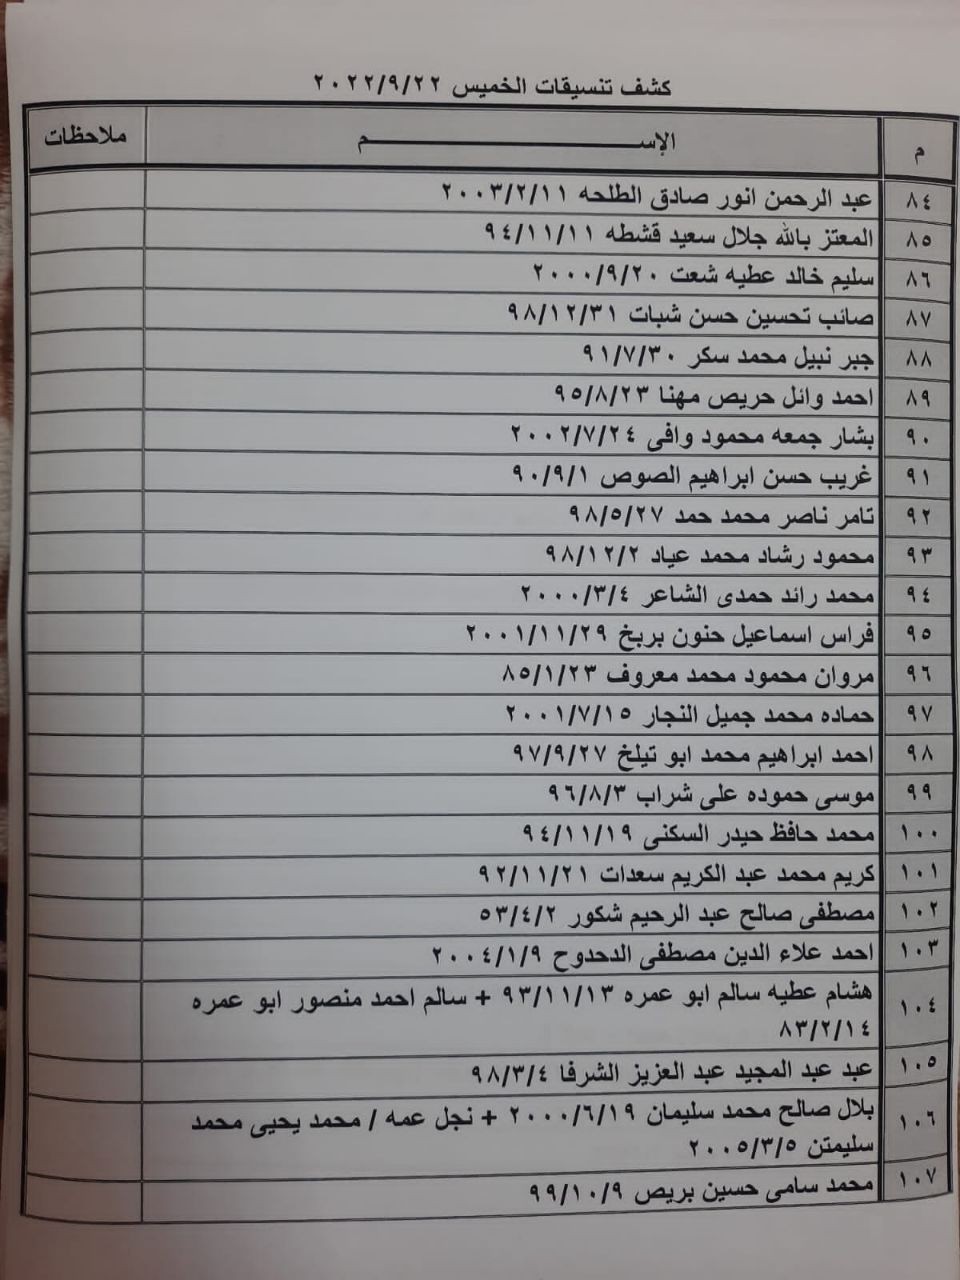 كشف تنسيقات الخميس ٢٠٢٢/٩/٢٢
م الإســـم ملاحظات
٨٤ عبد الرحمن انور صادق الطلحه ٢٠٠٣/٢/١١
٨٥ المعتز بالله جلال سعيد قشطه ٩٤/١١/١١
٨٦ سليم خالد عطيه شعت ٢٠٠٠/٩/٢٠
٨٧ صائب تحسين حسن شبات ٩٨/١٢/٣١
٨٨ جبر نبيل محمد سكر ٩١/٧/٣٠
٨٩ احمد وائل حريص مهنا ٩٥/٨/٢٣
٩٠ بشار جمعه محمود وافى ٢٠٠٢/٧/٢٤
٩١ غريب حسن ابراهيم الصوص ٩٠/٩/١
٩٢ تامر ناصر محمد حمد ٩٨/٥/٢٧
٩٣ محمود رشاد محمد عياد ٩٨/١٢/٢
٩٤ محمد رائد حمدى الشاعر ٢٠٠٠/٣/٤
٩٥ فراس اسماعيل حنون بربخ ٢٠٠١/١١/٢٩
٩٦ مروان محمود محمد معروف ٨٥/١/٢٣
٩٧ حماده محمد جميل النجار ٢٠٠١/٧/١٥
٩٨ احمد ابراهيم محمد ابو تيلخ ٩٧/٩/٢٧
٩٩ موسى حموده على شراب ٩٦/٨/٣
١٠٠ محمد حافظ حيدر السكنى ٩٤/١١/١٩
١٠١ كريم محمد عبد الكريم سعدات ٩٢/١١/٢١
١٠٢ مصطفى صالح عبد الرحيم شكور ٥٣/٤/٢
١٠٣ احمد علاء الدين مصطفى الدحدوح ٢٠٠٤/١/٩
١٠٤ هشام عطيه سالم ابو عمره ٩٣/١١/١٣ + سالم احمد منصور ابو عمره
٨٣/٢/١٤
١٠٥ عبد عبد المجيد عبد العزيز الشرفا ٩٨/٣/٤
١٠٦ بلال صالح محمد سليمان ٢٠٠٠/٦/١٩ + نجل عمه / محمد يحيى محمد
سليمتن ٢٠٠٥/٣/٥
١٠٧ محمد سامى حسين بريص ٩٩/١٠/٩